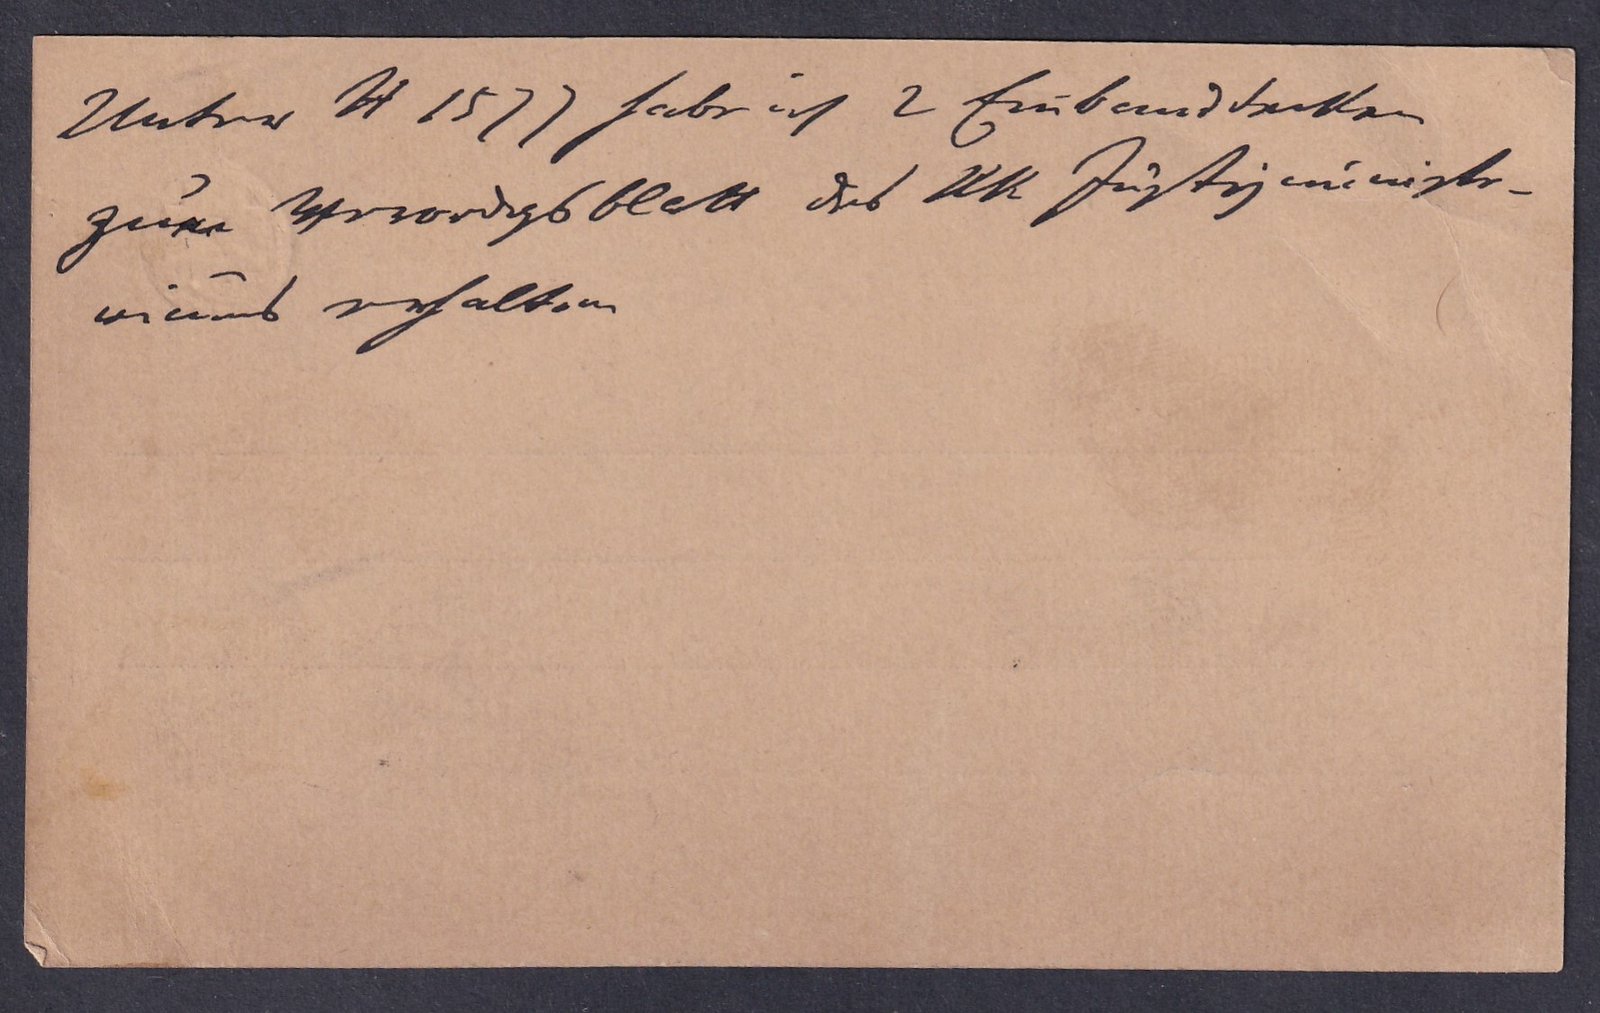 Unter H 1577 habe ich 2 Einbanddecken
zum Verordgsblatt des KK Justizministe-
riums erhalten